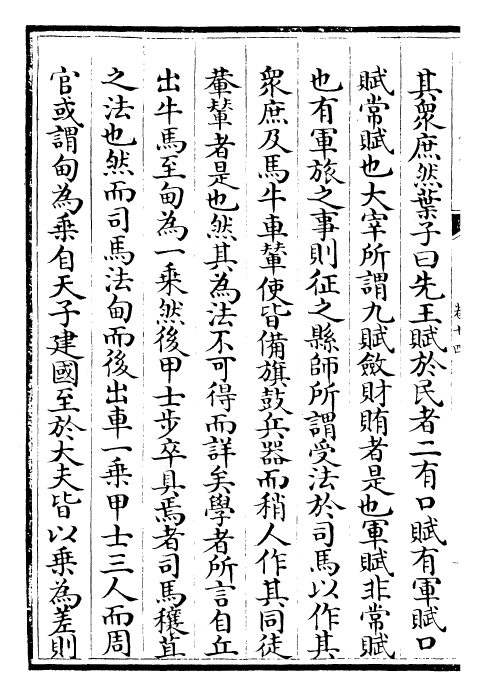 其衆庶然葉子曰先王賦於民者二有口賦有軍賦口
賦常賦也大宰所謂九賦斂財賄者是也軍賦非常賦
也有軍旅之事則征之縣師所謂受法於司馬以作其
衆庶及馬牛車輦使皆備旗鼓兵器而稍人作其同徒
輂輦者是也然其為法不可得而詳矣學者所言自丘
出牛馬至甸為一乘然後甲士步卒具焉者司馬穰苴
之法也然而司馬法甸而後出車一乘甲士三人而周
官或謂甸為乘自天子建國至於大夫皆以乘為差則
卷十四